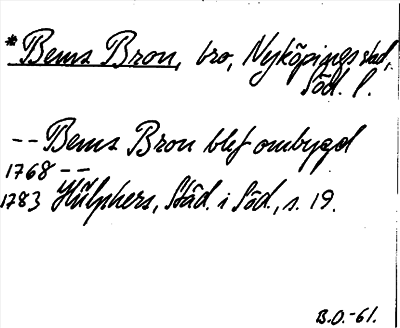 *Bems Bron, bro, Nyköpings stad,
Söd. l.
-- Bems Bron blef ombygd
1768 --
1783 Hülphers, Städ. i Söd., s. 19.
B.O.-61.